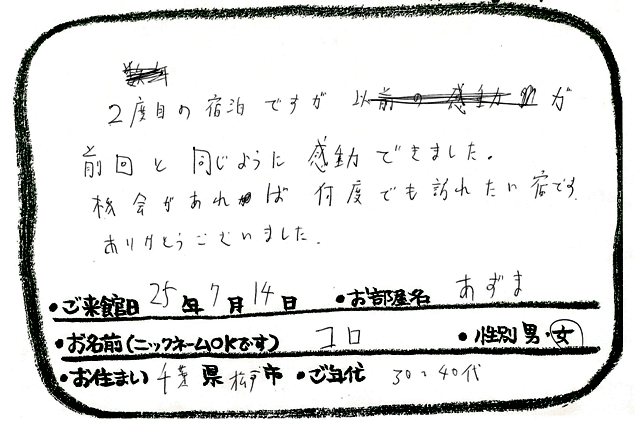 2度目の宿泊ですが 以前の感動が
前回と同じように感動できました。
機会があれば 何度でも訪れたい宿です
ありがとうございました。
・ご来館日 25年7月14日 ・お部屋名 あずま
・お名前(ニックネームOKです) コロ ・性別 男・女
・お住まい 千葉県松戸市 ・ご年代 30~40代